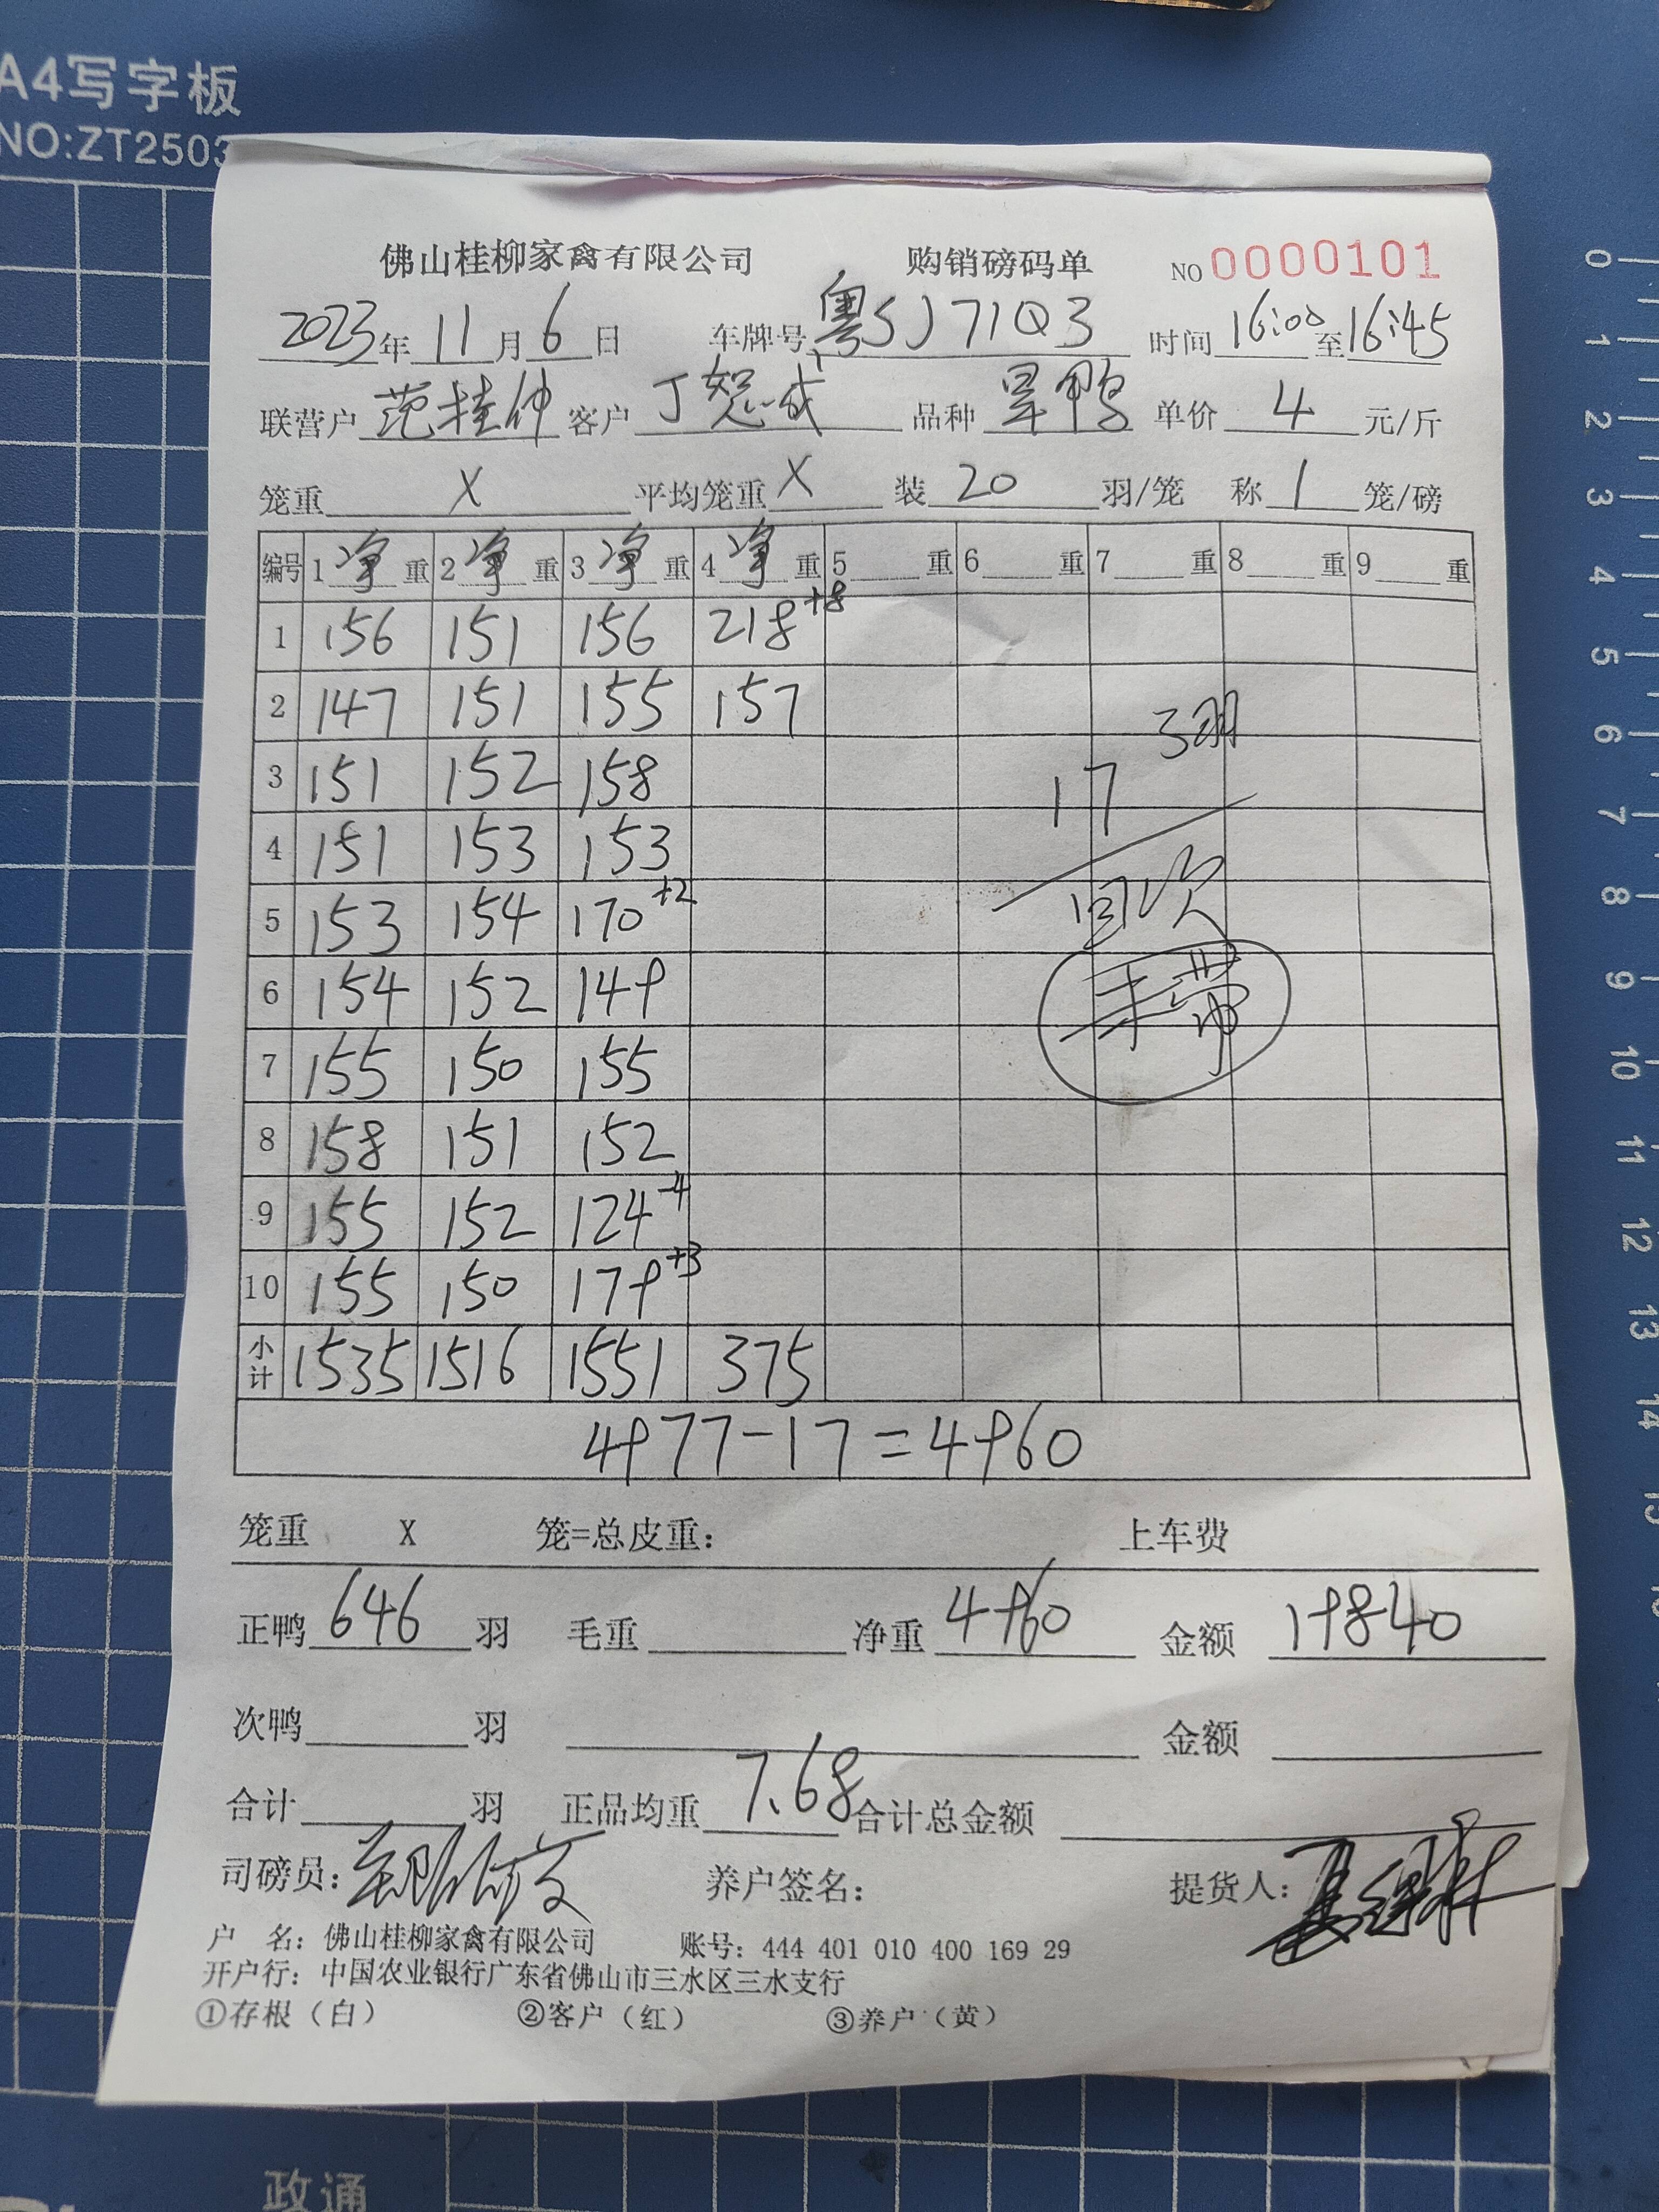 A4写字板
NO:ZT2503
佛山桂柳家禽有限公司 购销磅码单 NO 0000101
2023年11月6日 车牌号 粤SJ71Q3 时间16:00至16:45
联营户 范桂仲 客户 丁恕成 品种 旱鸭 单价 4 元/斤
笼重 X 平均笼重 X 装 20 羽/笼 称 1 笼/磅
编号 1净重 2净重 3净重 4净重 5 重 6 重 7 重 8 重 9 重
1 156 151 156 218+8
2 147 151 155 157
3羽
3 151 152 158
17
4 151 153 153
5 153 154 170+2
回次
6 154 152 149
手带
7 155 150 155
8 158 151 152
9 155 152 124-4
10 155 150 179+3
小计 1535 1516 1551 375
4977-17=4960
笼重 X 笼=总皮重: 上车费
正鸭 646 羽 毛重 净重 4960 金额 19840
次鸭 羽 金额
合计 羽 正品均重 7.68 合计总金额
司磅员: 养户签名: 提货人:
户 名: 佛山桂柳家禽有限公司 账号: 444 401 010 400 169 29
开户行: 中国农业银行广东省佛山市三水区三水支行
①存根（白） ②客户（红） ③养户（黄）
政通
0
1
2
3
4
5
6
7
8
9
10
11
12
13
14
15